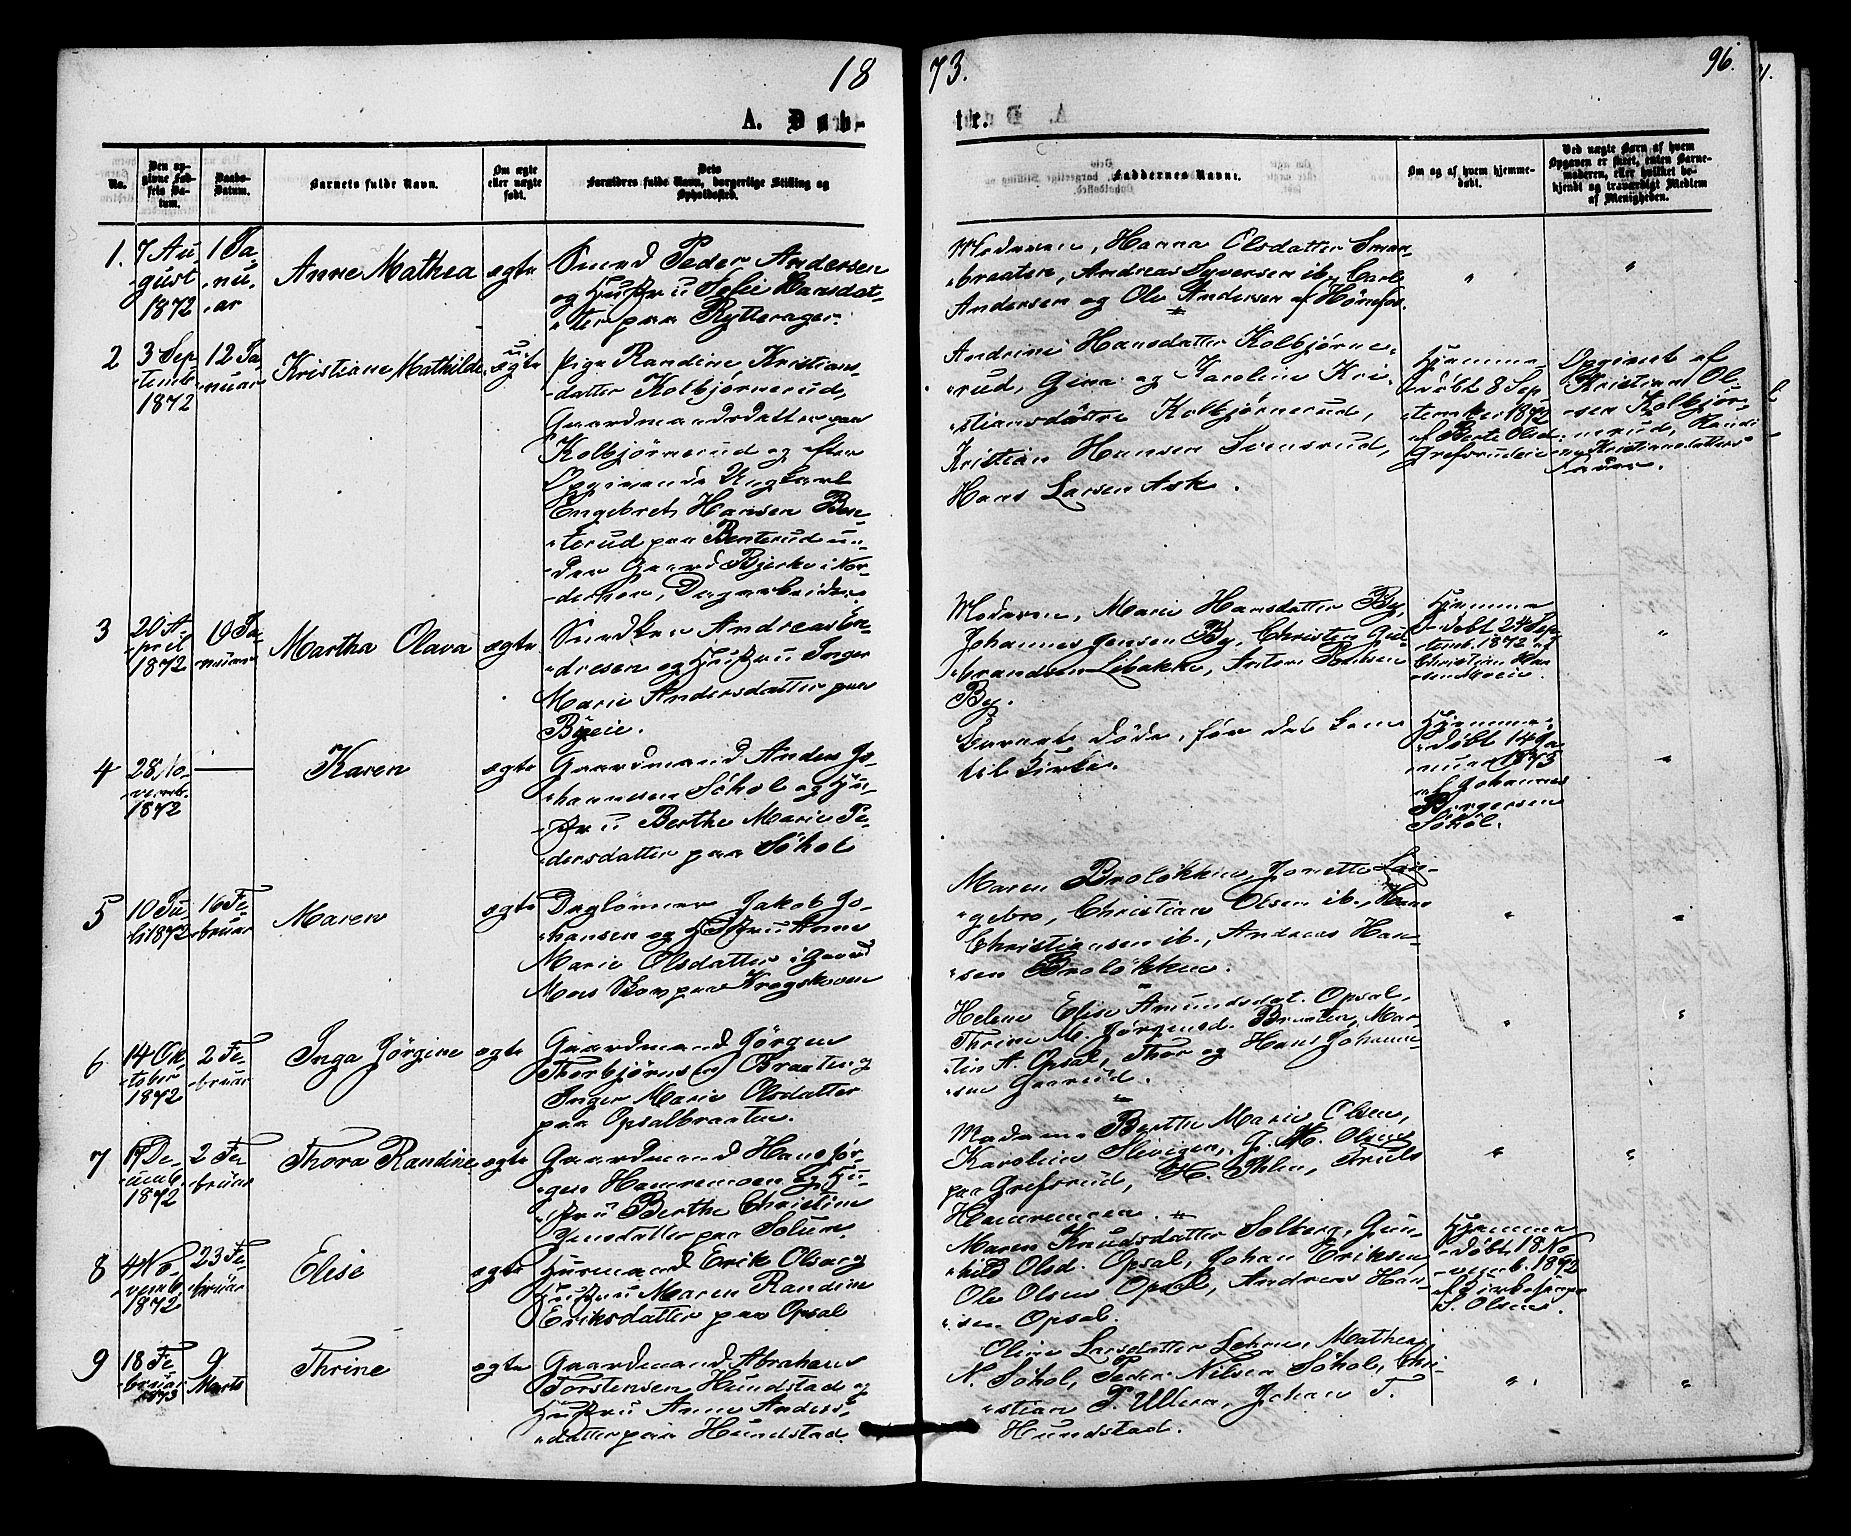 18
73.
96.
A. Døb-
te.
No.
Den opgivne Fødsels Datum.
Daabs-Datum.
Barnets fulde Navn.
Om ægte eller uægte født.
Dets Forældres fulde Navn, borgerlige Stilling og Opholdssted.
Faddernes Navne.
Om og af hvem hjemmedøbt.
Ved uægte Børn af hvem Opgaven er skeet, enten Barnemoderen, eller hvilket bekjendt og troværdigt Medlem af Menigheden.
1.
7 Au-
gust
1872
1 Ja-
nu-
ar
Anne Mathea
ægte
Smed Peder Andersen
og Hustru Sofie Hansdat-
ter paa Rytterager.
Moderen, Hanna Olsdatter
braaten, Andreas Syversen ib., Carl
Andersen og Ole Andersen af Hønefos.
"
"
2
3 Sep
temb.
1872
12 Ja-
nuar
Kristiane Mathilde
uægte
Pige Randine Kristians-
datter Kolbjørnerud,
Gaardmandsdatter paa
Kolbjørnerud og efter
Opgivende Ungkarl
Engebret Hansen Ben-
terud paa Benterud un-
der Gaard Bjerke i Nor-
derhov, Dagarbeider.
Andrine Hansdatter Kolbjørne-
rud, Gina og Karoline Kri-
stiansdøttre Kolbjørnerud,
Kristian Hansen Svensrud,
Hans Larsen Ask.
Hjemme
døbt 8 Sep
tember 1872
af Berte Olsd
Grefsrudeie
Opgivet af
Kristian Ol-
sen Kolbjør-
nerud, Randi
ne Kristiansdatters
Fader.
3
20 A-
pril
1872
19 Ja-
nuar
Martha Olava
ægte
Snedker Andreas En-
dresen og Hustru Inger
Marie Andersdatter paa
Byeie.
Moderen, Marie Hansdatter By,
Johannes Jensen By, Christen Gul-
brandsen Libakke, Anton
By.
Hjemme
døbt 24 Sep
temb. 1872 af
Christian Han
sen
"
4
28 No-
vemb.
1872
Karen
ægte
Gaardmand Anders Jo-
hannesen Søhol og Hu-
stru Berthe Marie Pe-
dersdatter paa Søhol
Barnet døde, før det kom
til Kirke.
Hjemme-
døbt 14 Ja-
nuar 1873
af Johannes
Borgersen
Søhol.
"
5
10 Ju-
li 1872
16 Fe-
bruar
Maren
ægte
Daglønner Jakob Jo-
hansen og Hustru Anne
Marie Olsdatter i Gaard
Moes Kom paa Krogskoven
Maren Broløkken, Jonette Lan-
gebro, Christian Olsen ib., Hans
Christiansen ib., Andreas Han-
sen Broløkken.
"
"
6
14 Ok-
tober
1872
2 Fe-
bruar
Inga Jørgine
ægte
Gaardmand Jørgen
Thorbjørnsen Braaten og
Inger Marie Olsdatter
paa Opsalbraaten.
Helene Elise Amundsdat. Opsal,
Thrine M. Jørgensd. Braaten, Mar-
tin A. Opsal, Thor og Hans Johanne-
sen Gaarud.
"
"
7
17 De-
cemb.
1872
2 Fe-
bruar
Thora Randine
ægte
Gaardmand Hans Jør-
gen Hamremoen og Hu-
stru Berthe Christine
Jensdatter paa Solum.
Madame Berthe Marie Olsen,
Karoline Slevigen, G. M. Olsen
paa Grefsrud, H. Ihlen, Truls
Hamremoen.
"
"
8
4 No-
vemb.
1872
23 Fe-
bruar
Elise
ægte
Husmand Erik Olsen og
Hustru Maren Randine
Eriksdatter paa Opsal
Maren Knudsdatter Solberg, Gun-
hild Olsd. Opsal, Johan Eriksen,
Ole Olsen Opsal, Andreas Han-
sen Opsal.
Hjemme
døbt 18 No
vemb. 1872
af Kirkesanger
S. Olsen.
9
18 Fe-
bruar
1873
9
Marts
Thrine
ægte
Gaardmand Abraham
Torstensen Hundstad og
Hustru Anne Anders-
datter paa Hundstad.
Oline Larsdatter Lehne, Mathea
N. Søhol, Peder Nilsen Søhol, Chri-
stian P. Ullern, Johan T.
Hundstad.
"
"